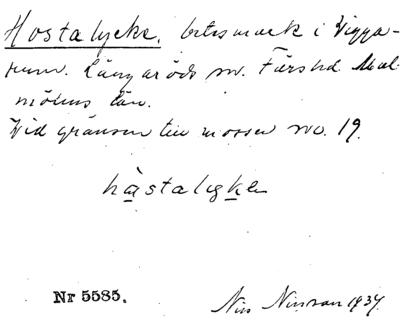 Hostalycke. betesmark i Vigga-
rum. Långaröds sn. Färs hd. Mal-
möhus län.
Vid gränsen till mossen no. 19.
hàstalyken
Nr 5585.
Nils Nilsson 1934